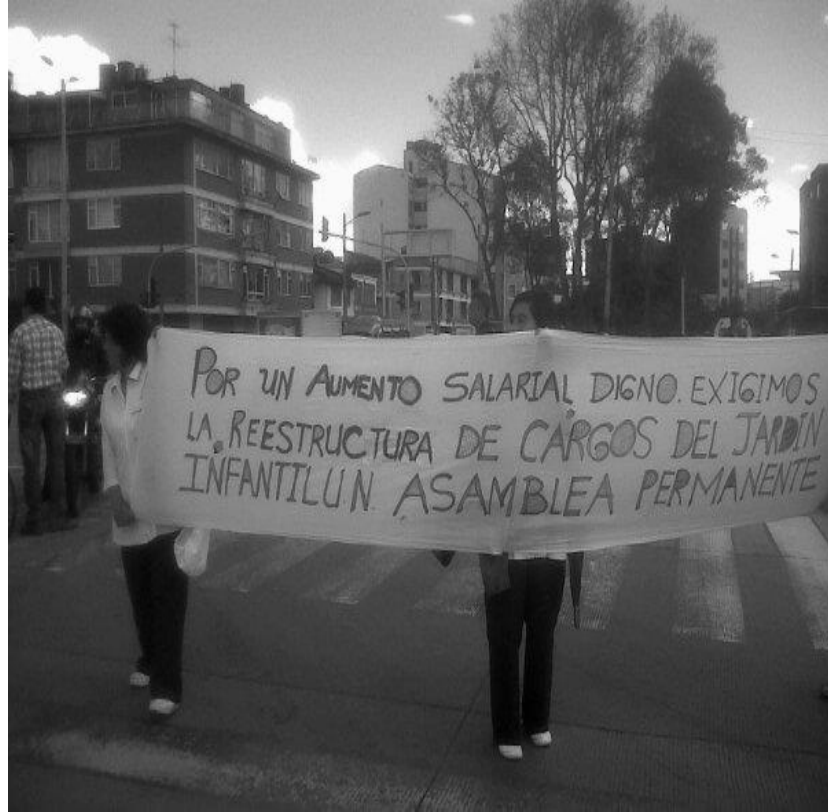 POR UN AUMENTO SALARIAL DIGNO. EXIGIMOS
LA REESTRUCTURA DE CARGOS DEL JARDÍN
INFANTIL UN. ASAMBLEA PERMANENTE